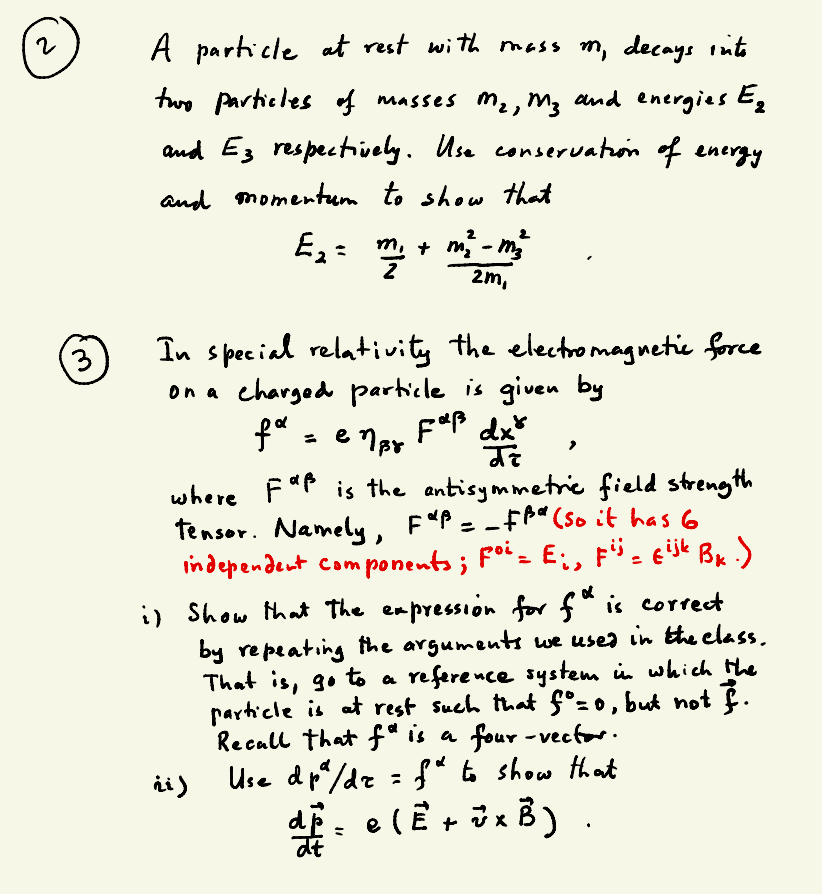 2 A particle at rest with mass m₁ decays into
two particles of masses m₂, m₃ and energies E₂
and E₃ respectively. Use conservation of energy
and momentum to show that
E₂ = m₁/2 + (m₂² - m₃²)/2m₁ .
3 In special relativity the electromagnetic force
on a charged particle is given by
f^α = e η_βγ F^αβ dx^γ/dτ ,
where F^αβ is the antisymmetric field strength
tensor. Namely, F^αβ = -F^βα (So it has 6
independent components; F^oi = E_i, F^ij = ε^ijk B_k.)
i) Show that the expression for f^α is correct
by repeating the arguments we used in the class.
That is, go to a reference system in which the
particle is at rest such that f^0 = 0, but not f⃗.
Recall that f^α is a four-vector.
ii) Use dp^α/dτ = f^α to show that
dp⃗/dt = e (E⃗ + v⃗ × B⃗) .